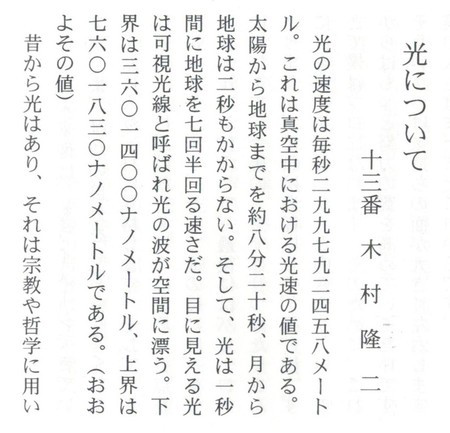 光について
十三番　木村隆二
　光の速度は毎秒二九九七九二四五八メート
ル。これは真空中における光速の値である。
太陽から地球までを約八分二十秒、月から
地球は二秒もかからない。そして、光は一秒
間に地球を七回半回る速さだ。目に見える光
は可視光線と呼ばれ光の波が空間に漂う。下
界は三六〇一四〇〇ナノメートル、上界は
七六〇一八三〇ナノメートルである。（おお
よその値）
　昔から光はあり、それは宗教や哲学に用い